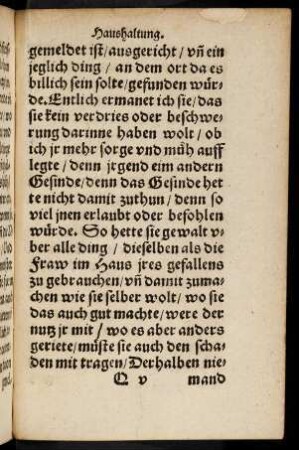 Haushaltung.
gemeldet ist/ausgericht/vñ ein
jeglich ding/an dem ort da es
billich sein solte/gefunden wür-
de. Entlich ermanet ich sie/das
sie kein verdries oder beschwe-
rung darinne haben wolt/ob
ich jr mehr sorge vnd müh auff
legte/denn jrgend eim andern
Gesinde/denn das Gesinde het
te nicht damit zuthun/denn so
viel jnen erlaubt oder befohlen
würde. So hette sie gewalt v-
ber alle ding/dieselben als die
Fraw im Haus jres gefallens
zu gebrauchen/vñ damit zuma-
chen wie sie selber wolt/wo sie
das auch gut machte/were der
nutz jr mit/wo es aber anders
geriete/müste sie auch den scha-
den mit tragen/Derhalben nie-
Q v mand